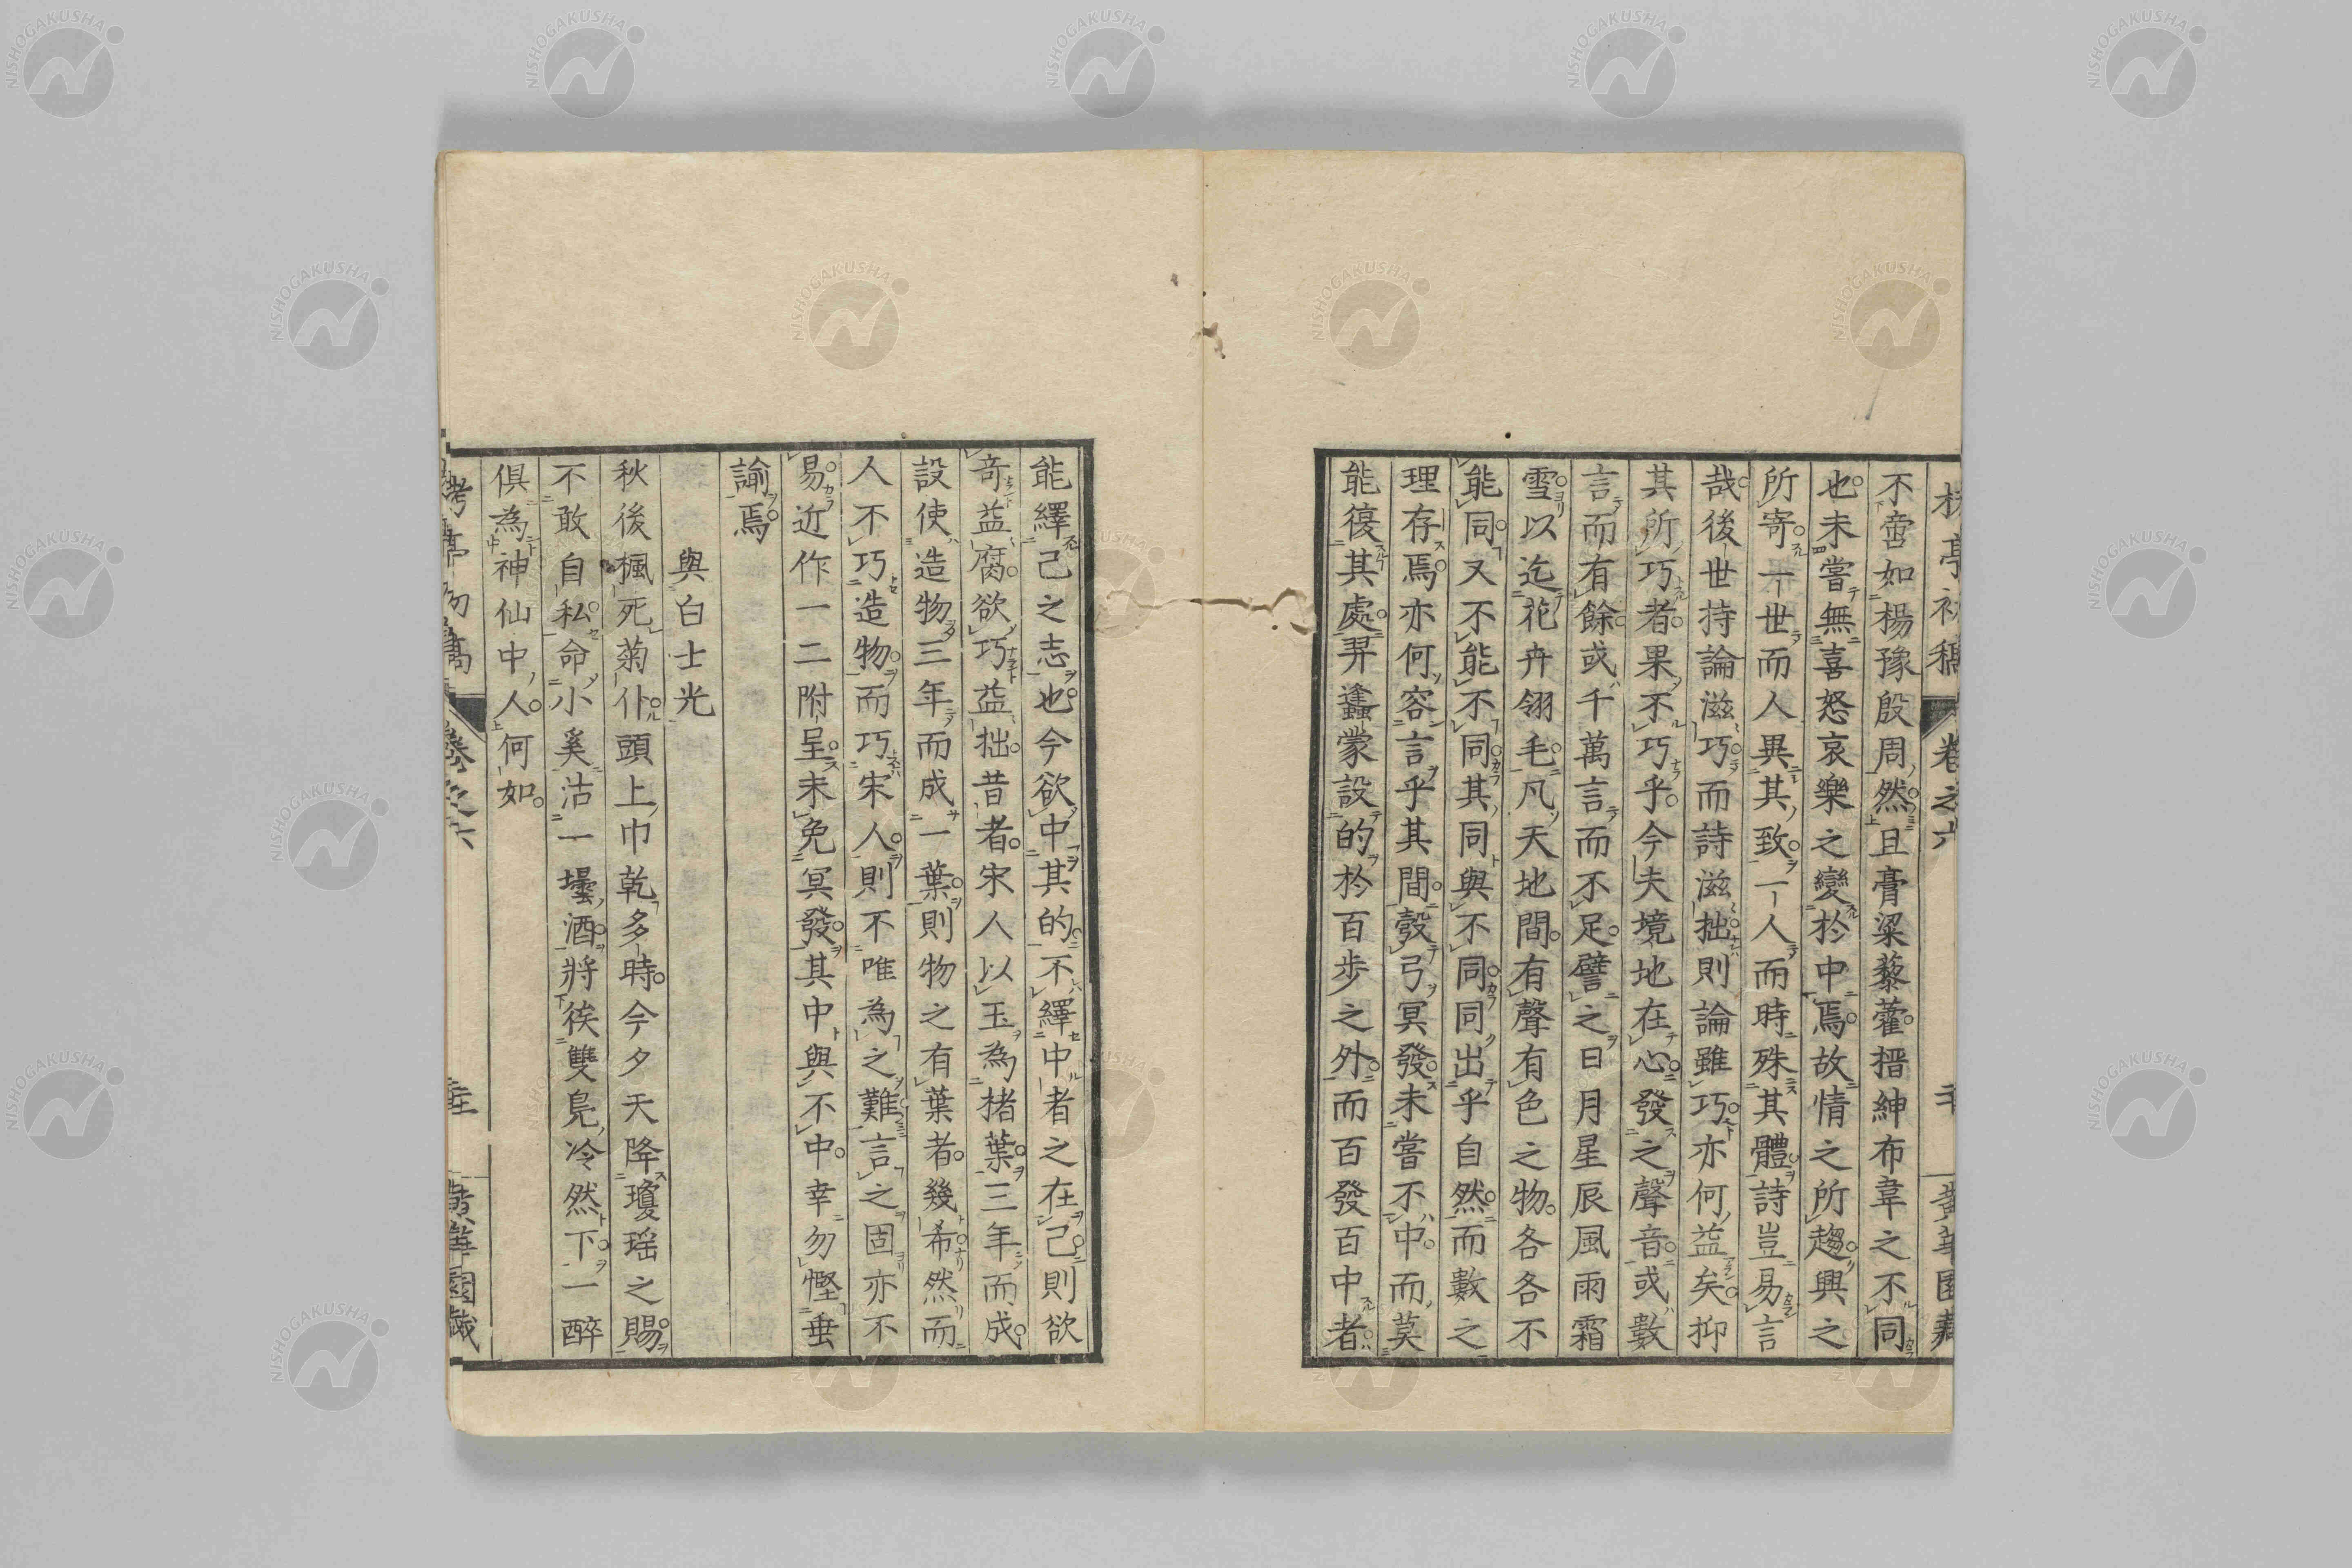 不啻如楊豫殷周然且膏粱藜藿搢紳布韋之不同
也未嘗無喜怒哀樂之變於中焉故情之所趨興之
所寄一世而人異其致一人而時殊其體詩豈易言
哉後世持論滋巧而詩滋拙則論雖巧亦何益矣抑
其所巧者果不巧乎今夫境地在心發之聲音或數
言而有餘或千萬言而不足譬之日月星辰風雨霜
雪以迄花卉翎毛凡天地間有聲有色之物各各不
能同又不能不同其同與不同同出乎自然而數之
理存焉亦何容言乎其間彀弓冥發未嘗不中而莫
能復其處羿蠭蒙設的於百步之外而百發百中者
能繹己之志也今欲中其的不繹中者之在己則欲
奇益腐欲巧益拙昔者宋人以玉為楮葉三年而成
設使造物三年而成一葉則物之有葉者幾希然而
人不巧造物而巧宋人則不唯為之難言之固亦不
易近作一二附呈未免冥發其中與不中幸勿慳垂
諭焉
與白士光
秋後楓死菊仆頭上巾乾多時今夕天降瓊瑤之賜
不敢自私命小奚沽一壜酒將俟雙鳧冷然下一醉
俱為神仙中人何如
卷之六
NISHOGAKUSHA